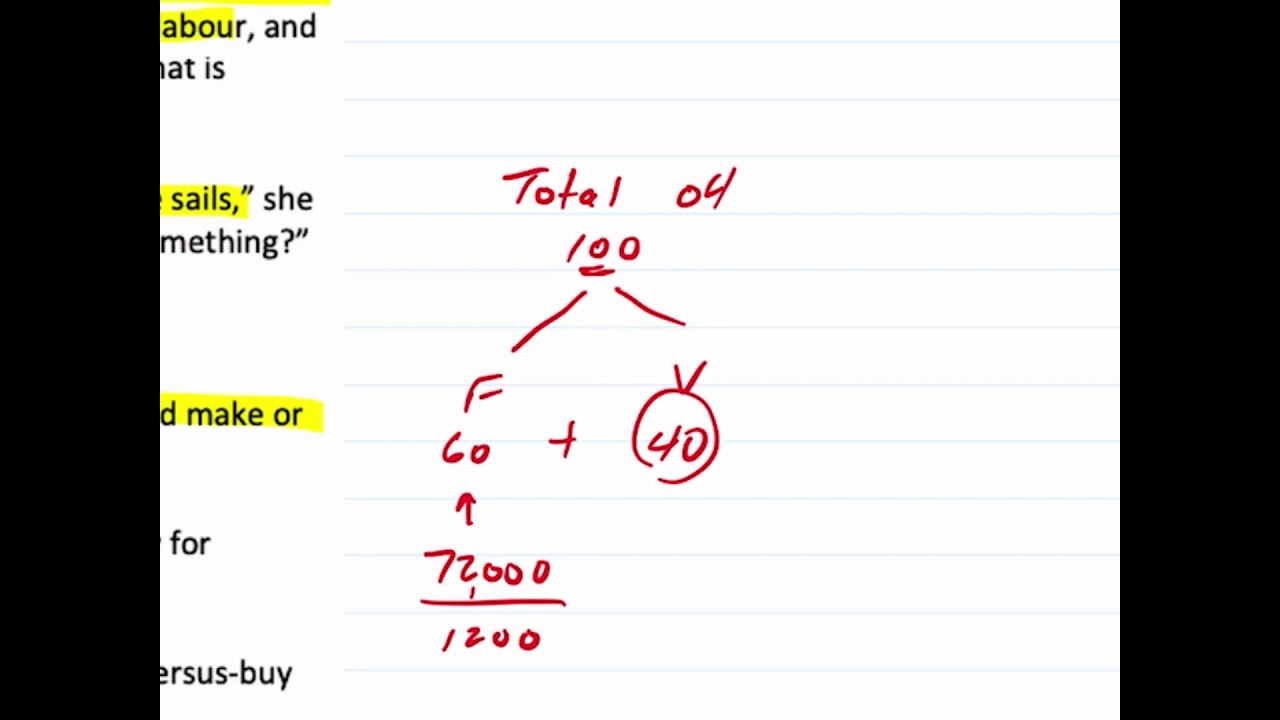 abour, and
hat is
sails,” she
mething?”
d make or
for
ersus-buy
Total OH
100
F V
60 + 40
72,000
1200